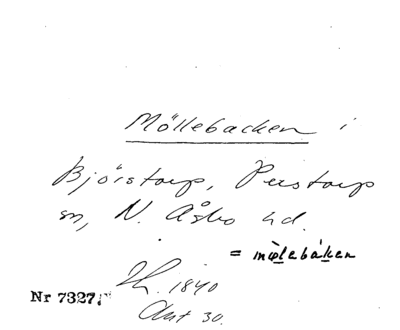 Möllebacken i
Bjärstorp, Perstorp
sn, N. Åsbo hd.
= mölebaken
1840
Akt 30.
Nr 7327.